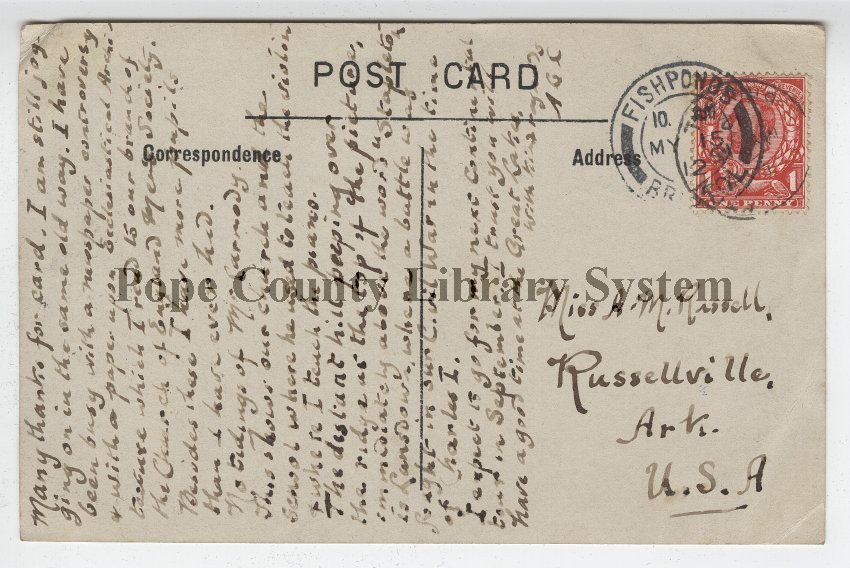 POST CARD
Correspondence
Address
FISHPONDS
10.
MY
BR
ONE PENNY
1
Pope County Library System
Miss A. M. Russell,
Russellville,
Ark.
U.S.A
Many thanks for card. I am still jog
ging on in the same old way. I have
been busy with a newspaper controversy
& with a paper upon Ecclesiastical
which I read to our branch of
the Church of England Men's Society.
Besides these I have more pupils
than I have ever had.
No tidings of Mr. Carnody.
This shows our church and the
school where he used to teach the violin
& where I teach the piano.
The distant hill peeping over
the ridge at the top of the picture,
immediately above the word Stapleton
is Lansdown, where a battle was
fought in our Civil War in the time
of Charles I.
I expect to go for my next continental
tour in September. I trust you will
have a good time at the Great Lakes.
With kind regards